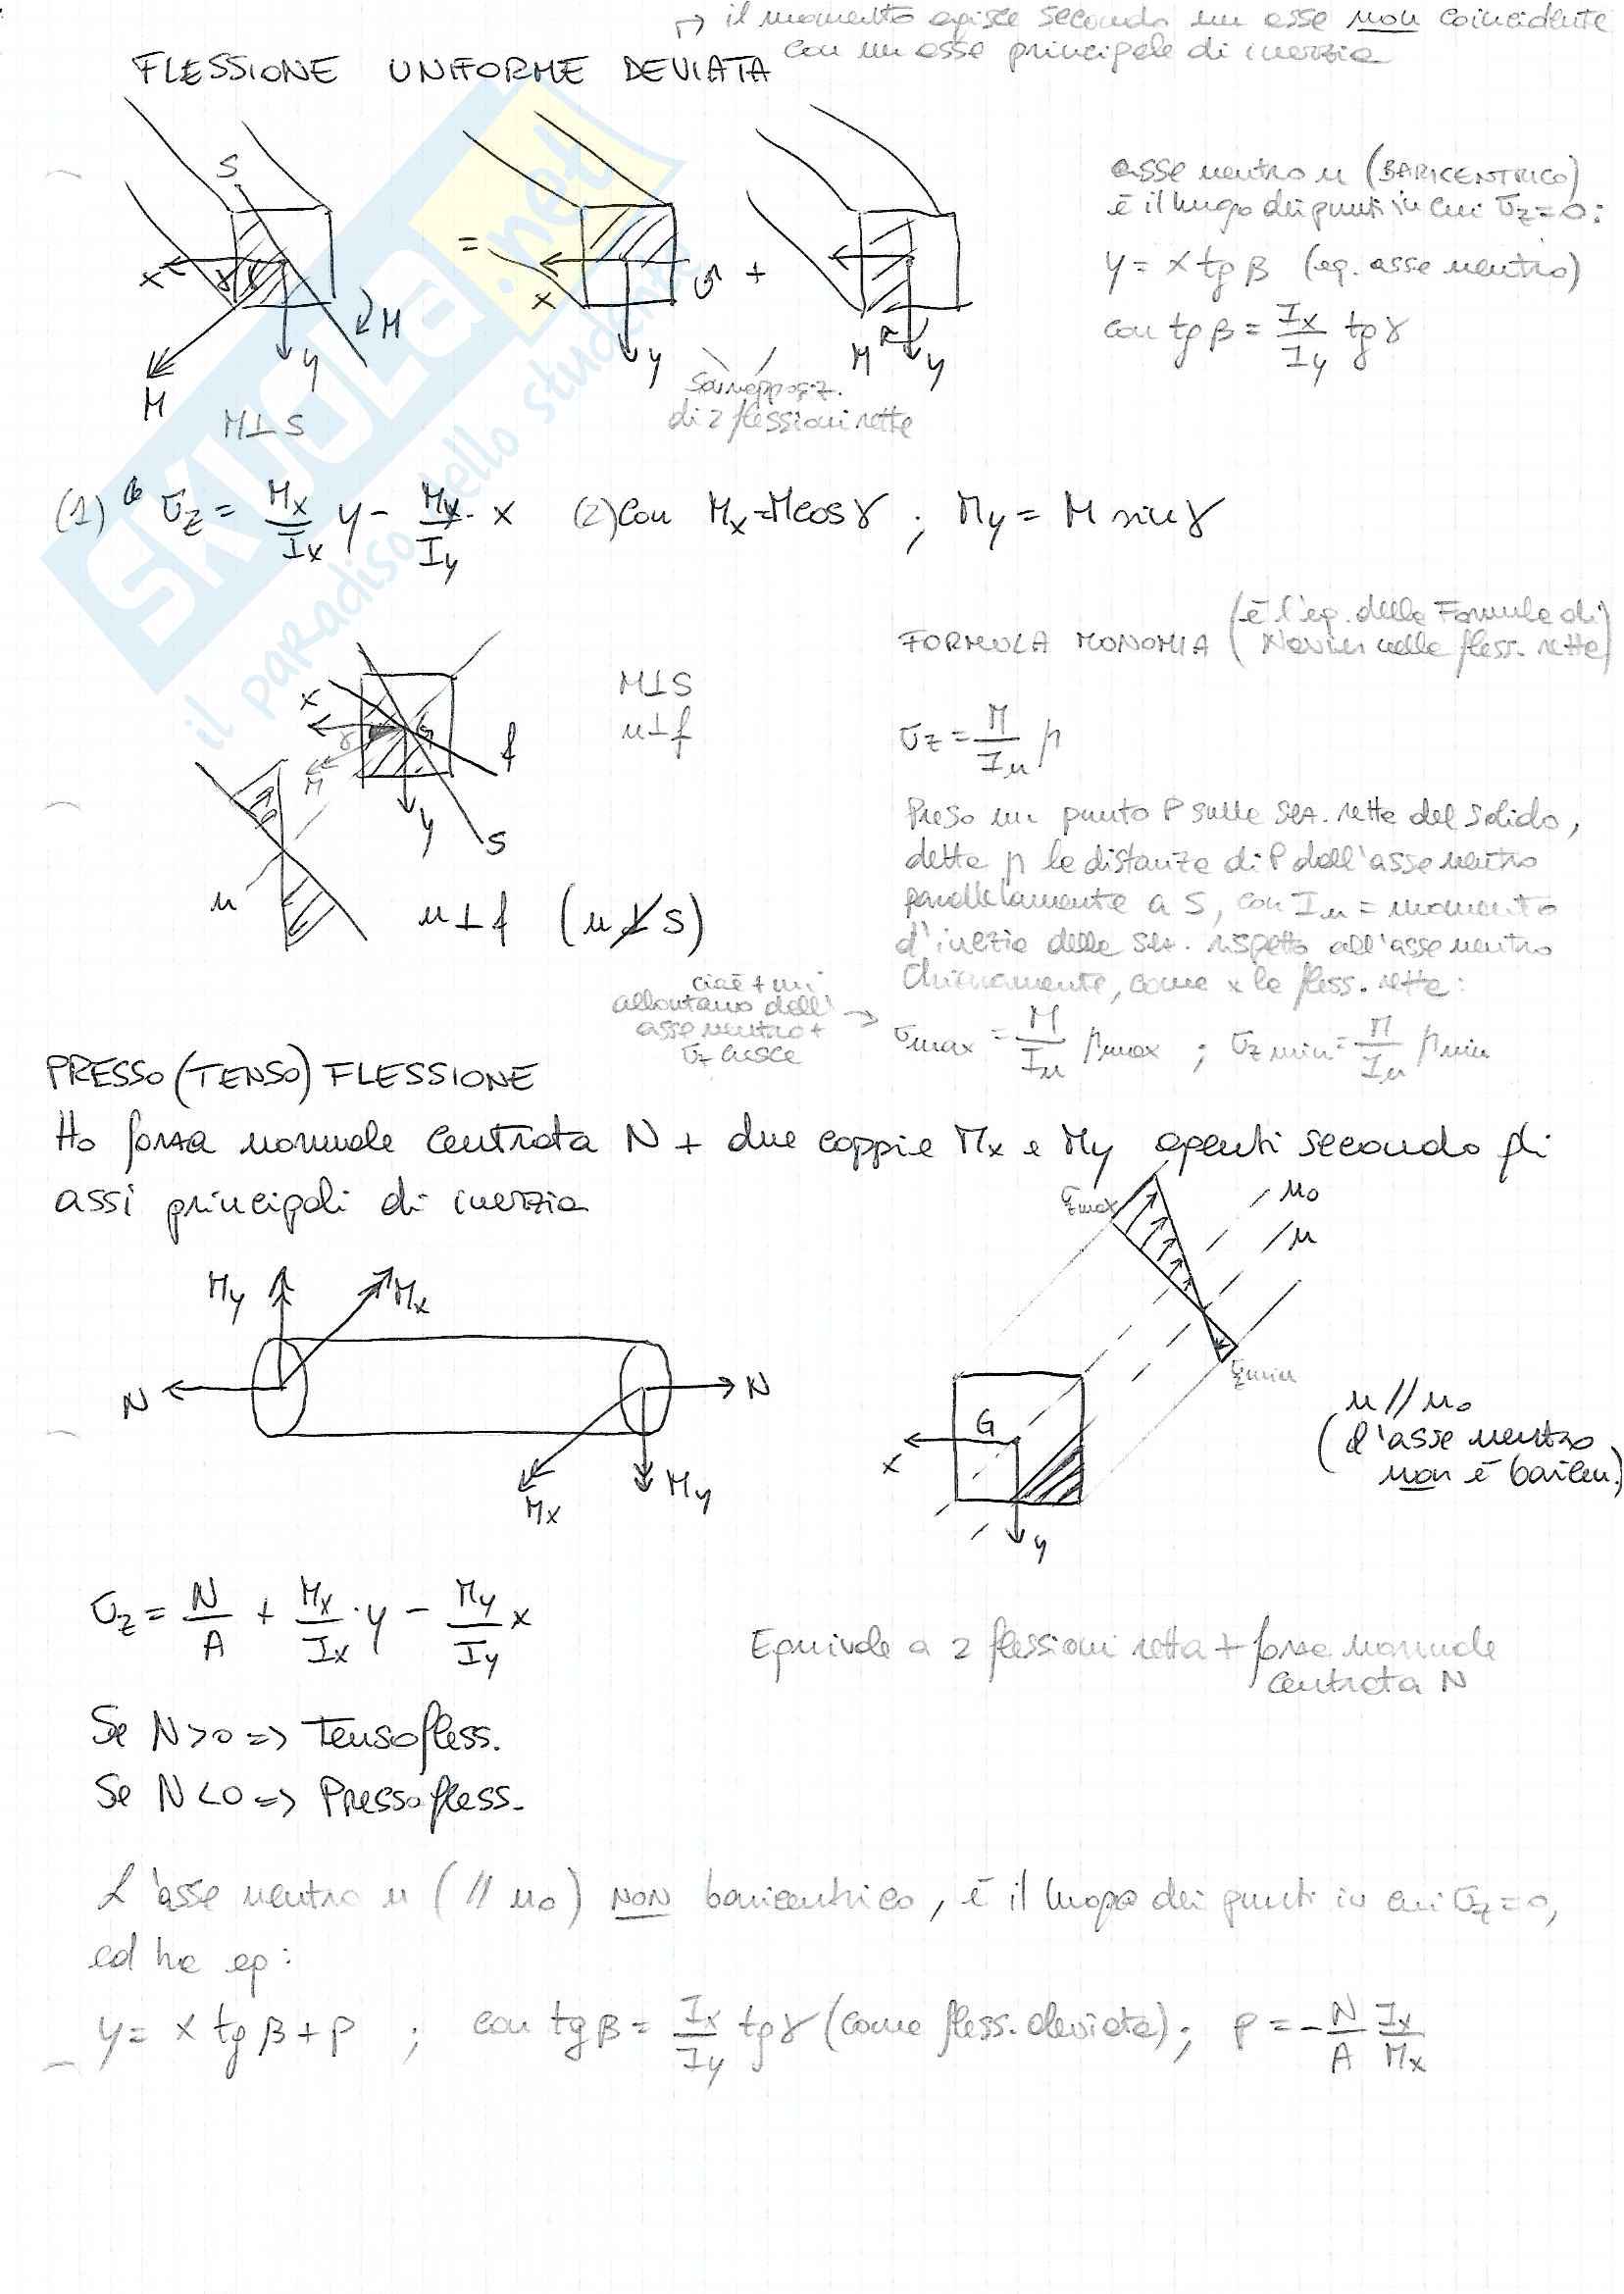 ↱ il momento agisce secondo un asse non coincidente
con un asse principale di inerzia
FLESSIONE UNIFORME DEVIATA
S
x
M
M
y
M⊥S
=
x
y
+
M
y
Sovrapposiz.
di 2 flessioni rette
asse neutro n (BARICENTRICO)
è il luogo dei punti in cui σz=0:
y = x tg β (eq. asse neutro)
con tg β = Ix/Iy tg γ
(1) σz = Mx/Ix y - My/Iy · x (2) con Mx = M cos γ ; My = M sin γ
x
γ
M
G
f
y
S
n
M⊥S
n⊥f
n⊥f (n⊥̸S)
FORMULA MONOMIA (è l'eq. della Formula di
Navier nelle fless. rette)
σz = M/In η
Preso un punto P sulla sez. retta del solido,
detta η la distanza di P dall'asse neutro
parallelamente a S, con In = momento
d'inerzia della sez. rispetto all'asse neutro
Chiaramente, come x le fless. rette:
cioè + mi
allontano dall'
asse neutro +
σz cresce
→ σmax = M/In ηmax ; σz min = M/In ηmin
PRESSO (TENSO) FLESSIONE
Ho forza normale centrata N + due coppie Mx e My agenti secondo gli
assi principali di inerzia
My
Mx
N
N
Mx
My
σzmax
n0
n
σzmin
G
x
y
n // n0
(l'asse neutro
non è baricen.)
σz = N/A + Mx/Ix · y - My/Iy x
Equivale a 2 flessioni retta + forza normale
centrata N
Se N>0 => Tensofless.
Se N<0 => Pressofless.
L'asse neutro n (// n0) NON baricentrico, è il luogo dei punti in cui σz=0,
ed ha eq:
y = x tg β + p ; con tg β = Ix/Iy tg γ (come fless. deviata); p = - N/A Ix/Mx
SKUOLA.net
il paradiso dello studente